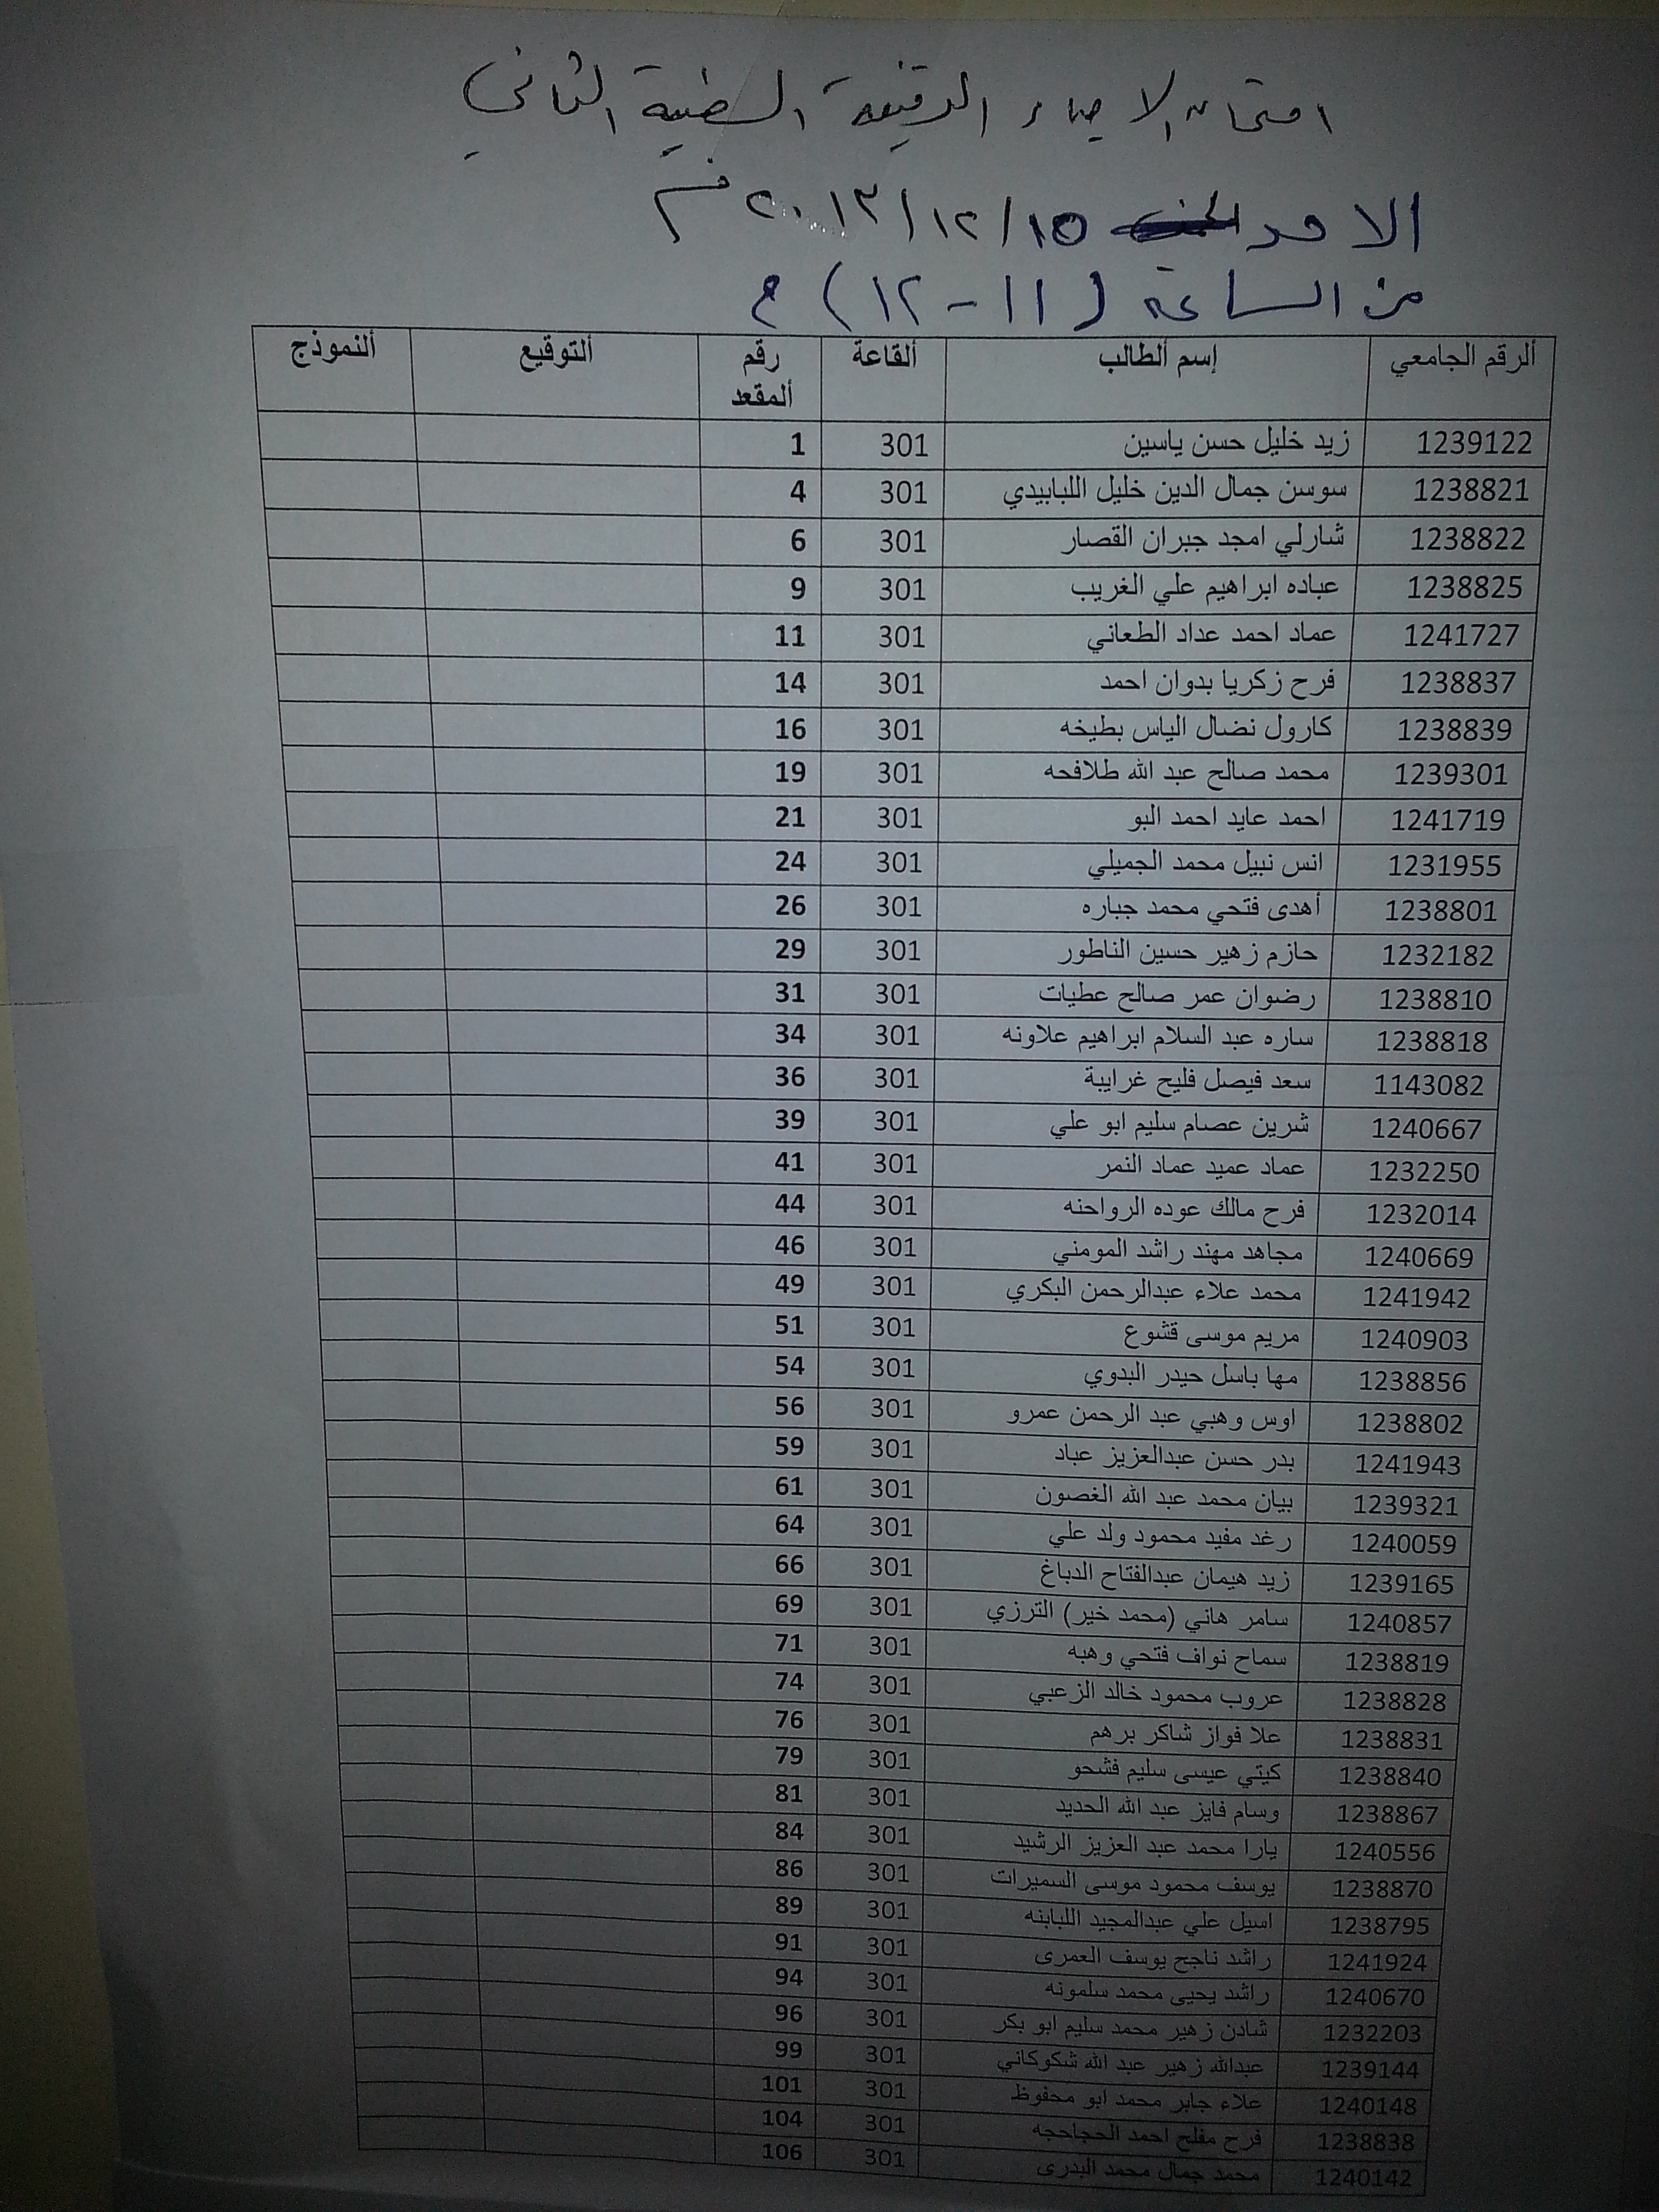 امتحان الاحياء الدقيقة السنية الثاني
الاحد ١٥/١٢/٢٠١٣ م
من الساعة (١١-١٢)
ألرقم الجامعي إسم ألطالب ألقاعة رقم ألمقعد ألتوقيع ألنموذج
1239122 زيد خليل حسن ياسين 301 1
1238821 سوسن جمال الدين خليل اللبابيدي 301 4
1238822 شارلي امجد جبران القصار 301 6
1238825 عباده ابراهيم علي الغريب 301 9
1241727 عماد احمد عداد الطعاني 301 11
1238837 فرح زكريا بدوان احمد 301 14
1238839 كارول نضال الياس بطيخه 301 16
1239301 محمد صالح عبد الله طلافحه 301 19
1241719 احمد عايد احمد البو 301 21
1231955 انس نبيل محمد الجميلي 301 24
1238801 أهدى فتحي محمد جباره 301 26
1232182 حازم زهير حسين الناطور 301 29
1238810 رضوان عمر صالح عطيات 301 31
1238818 ساره عبد السلام ابراهيم علاونه 301 34
1143082 سعد فيصل فليح غرايبة 301 36
1240667 شرين عصام سليم ابو علي 301 39
1232250 عماد عميد عماد النمر 301 41
1232014 فرح مالك عوده الرواحنه 301 44
1240669 مجاهد مهند راشد المومني 301 46
1241942 محمد علاء عبدالرحمن البكري 301 49
1240903 مريم موسى قشوع 301 51
1238856 مها باسل حيدر البدوي 301 54
1238802 اوس وهبي عبد الرحمن عمرو 301 56
1241943 بدر حسن عبدالعزيز عباد 301 59
1239321 بيان محمد عبد الله الغصون 301 61
1240059 رغد مفيد محمود ولد علي 301 64
1239165 زيد هيمان عبدالفتاح الدباغ 301 66
1240857 سامر هاني (محمد خير) الترزي 301 69
1238819 سماح نواف فتحي وهبه 301 71
1238828 عروب محمود خالد الزعبي 301 74
1238831 علا فواز شاكر برهم 301 76
1238840 كيتي عيسى سليم فشحو 301 79
1238867 وسام فايز عبد الله الحديد 301 81
1240556 يارا محمد عبد العزيز الرشيد 301 84
1238870 يوسف محمود موسى السميرات 301 86
1238795 اسيل علي عبدالمجيد اللبابنه 301 89
1241924 راشد ناجح يوسف العمرى 301 91
1240670 راشد يحيى محمد سلمونه 301 94
1232203 شادن زهير محمد سليم ابو بكر 301 96
1239144 عبدالله زهير عبد الله شكوكاني 301 99
1240148 علاء جابر محمد ابو محفوظ 301 101
1238838 فرح مفلح احمد الحجاحجه 301 104
1240142 محمد جمال محمد البدرى 301 106